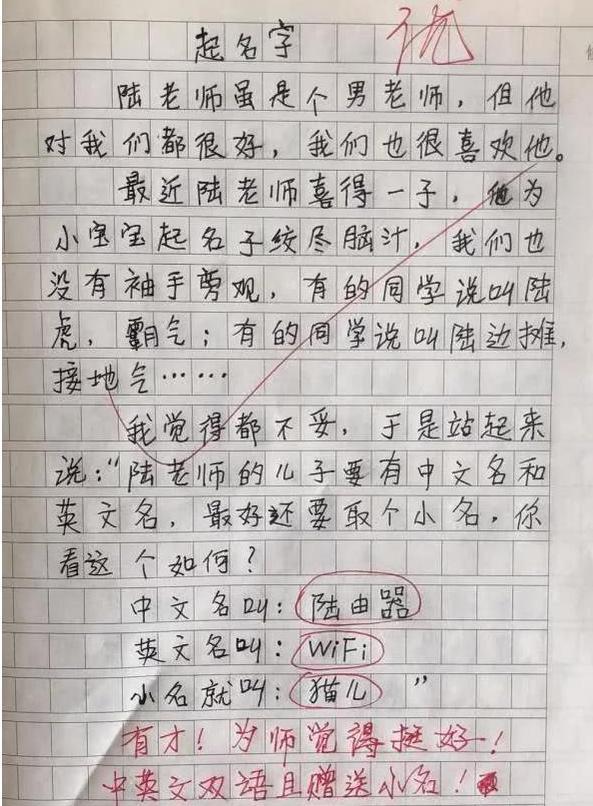 起名字
优
陆老师虽是个男老师，但他
对我们都很好，我们也很喜欢他。
最近陆老师喜得一子，他为
小宝宝起名子绞尽脑汁，我们也
没有袖手旁观，有的同学说叫陆
虎，霸气；有的同学说叫陆边摊，
接地气……
我觉得都不妥，于是站起来
说："陆老师的儿子要有中文名和
英文名，最好还要取个小名，你
看这个如何？
中文名叫：陆由器
英文名叫：WiFi
小名就叫：猫儿"
有才！为师觉得挺好！
中英文双语且赠送小名！